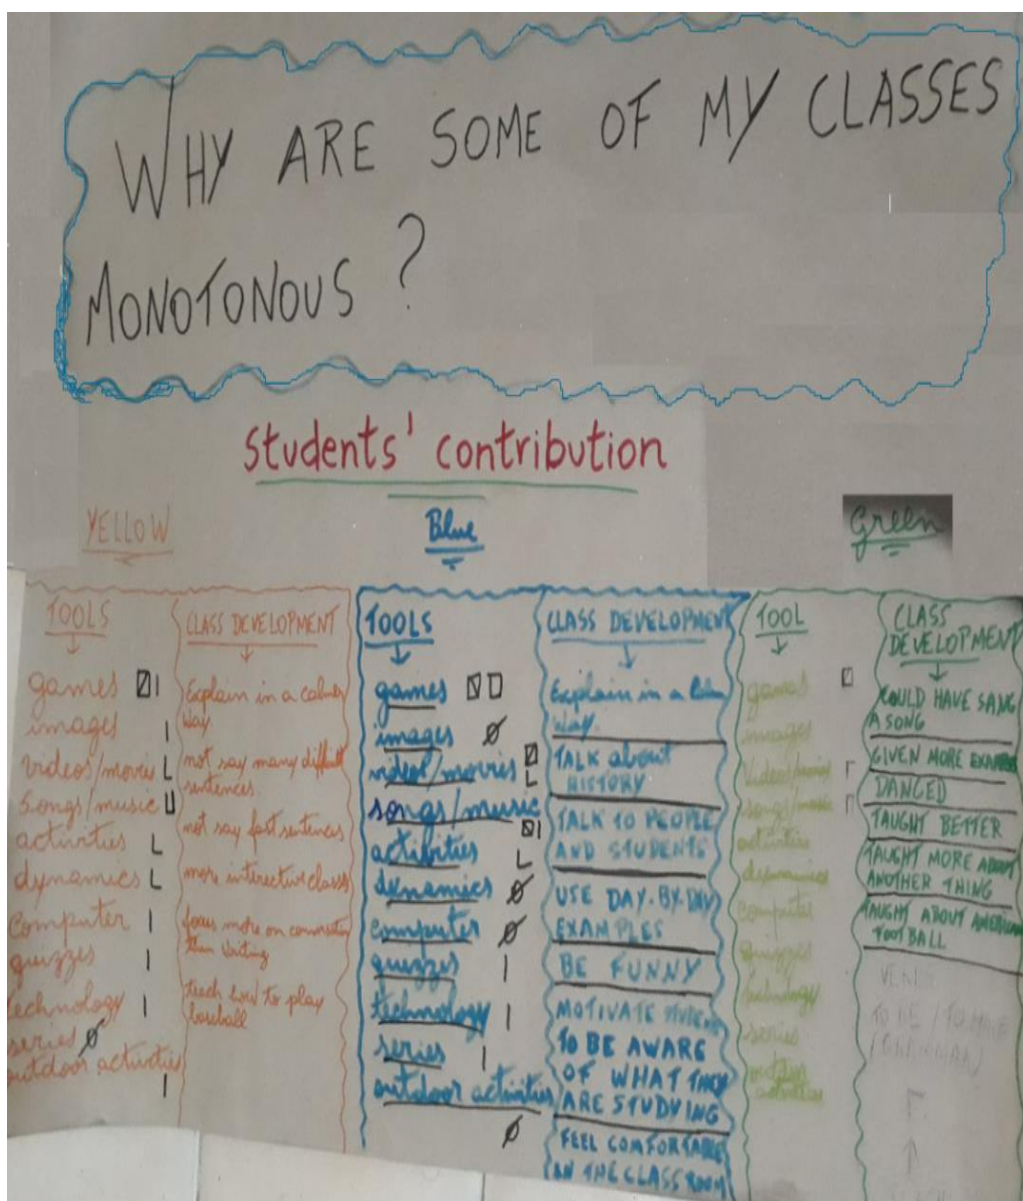 WHY ARE SOME OF MY CLASSES
MONOTONOUS ?
Students' contribution
YELLOW
TOOLS
games
images
videos/movies
Songs/music
activities
dynamics
Computer
quizzes
technology
series
outdoor activities
CLASS DEVELOPMENT
Explain in a calmer
way
not say many difficult
sentences
not say fast sentences
more interective classes
focus more on
than writing
teach how to play
baseball
Blue
TOOLS
games
images
videos/movies
songs/music
activities
dynamics
computer
quizzes
technology
series
outdoor activities
CLASS DEVELOPMENT
Explain in a calm
way
TALK about
HISTORY
TALK TO PEOPLE
AND STUDENTS
USE DAY-BY-DAY
EXAMPLES
BE FUNNY
MOTIVATE
TO BE AWARE
OF WHAT THEY
ARE STUDYING
FEEL COMFORTABLE
IN THE CLASSROOM
Green
TOOL
games
images
videos/movies
songs/music
activities
dynamics
computer
quizzes
technology
series
outdoor
activities
CLASS
DEVELOPMENT
COULD HAVE SANG
A SONG
GIVEN MORE EXAMPLES
DANCED
TAUGHT BETTER
TAUGHT MORE ABOUT
ANOTHER THING
TAUGHT ABOUT AMERICAN
FOOTBALL